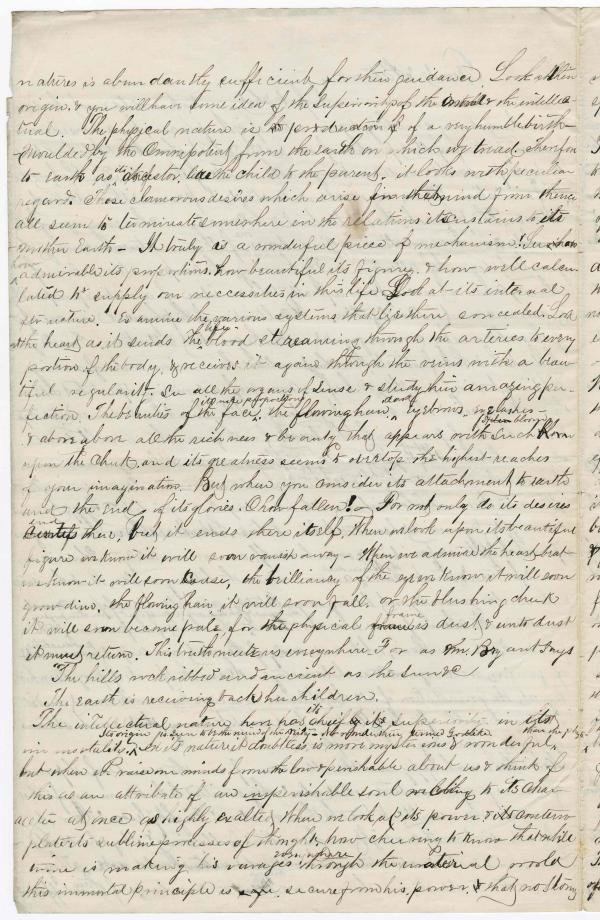 natures is abundantly sufficient for their guidance Look at their
origin & you will have some idea of the superiority of the & the intellec-
tual. The physical nature is production of a very humble birth
moulded by the Omnipotent from the Earth on which we tread. Therefore
to Earth as its ancestor, as the child to the parent. it looks with peculiar
regard. Those clamorous desires which arise in the mind from thence
all seem to terminate somewhere in the relations it sustains to its
mother Earth – It truly is a wonderful piece of mechanism! how
admirable its proportions, how beautiful its figure, & how well calcu-
lated to supply our neccessities in this life. Look at its internal
structure. Examine the various systems that lie there concealed. Look
at the heart as it sends the blood streaming through the arteries to every
portion of the body, & receives it again through the veins with a beau-
tiful regularity. In all the organs of sense & study their amazing per-
fection. The beauties of the face, its nice proportions the flowing hair, dark eyebrows, eyelashes –
& above above all the richness & beauty that appears with such bloom
upon the cheek. and its greatness seems to overtop the highest reaches
of your imagination. But when you consider its attachment to earth
and the end of its glories. O how fallen! – For not only do its desires
end there, but it ends there itself. When we look upon its beautiful
figure we know it will soon vanish away – When we admire the heart beat
we know it will soon cease, the brilliancy of the eye we know it will soon
grow dim, the flowing hair it will soon fall. or the blushing cheek
it will soon become pale, for the physical frame is dust & unto dust
it must return. This truth meets us everywhere. For as Wm. Bryant says
"The hills rock ribbed and ancient as the sun &c
The Earth is receiving back her children.
The intellectual nature has its superiority in its
immortality. Its origin is even to be the mind of the Deity – No wonder then genius Godlike
In its nature it doubtless is more mysterious & wonderful than the physic
but when we raise our minds from the low & perishable about us & think of
this as an attribute of an imperishable soul to its char-
acter at once as highly exalted When we look at its power & contem-
plate its sublime processes of thought, how cheering to know that while
time is making his ravages every where through the material world
this immortal principle is secure from his power. & that no strong